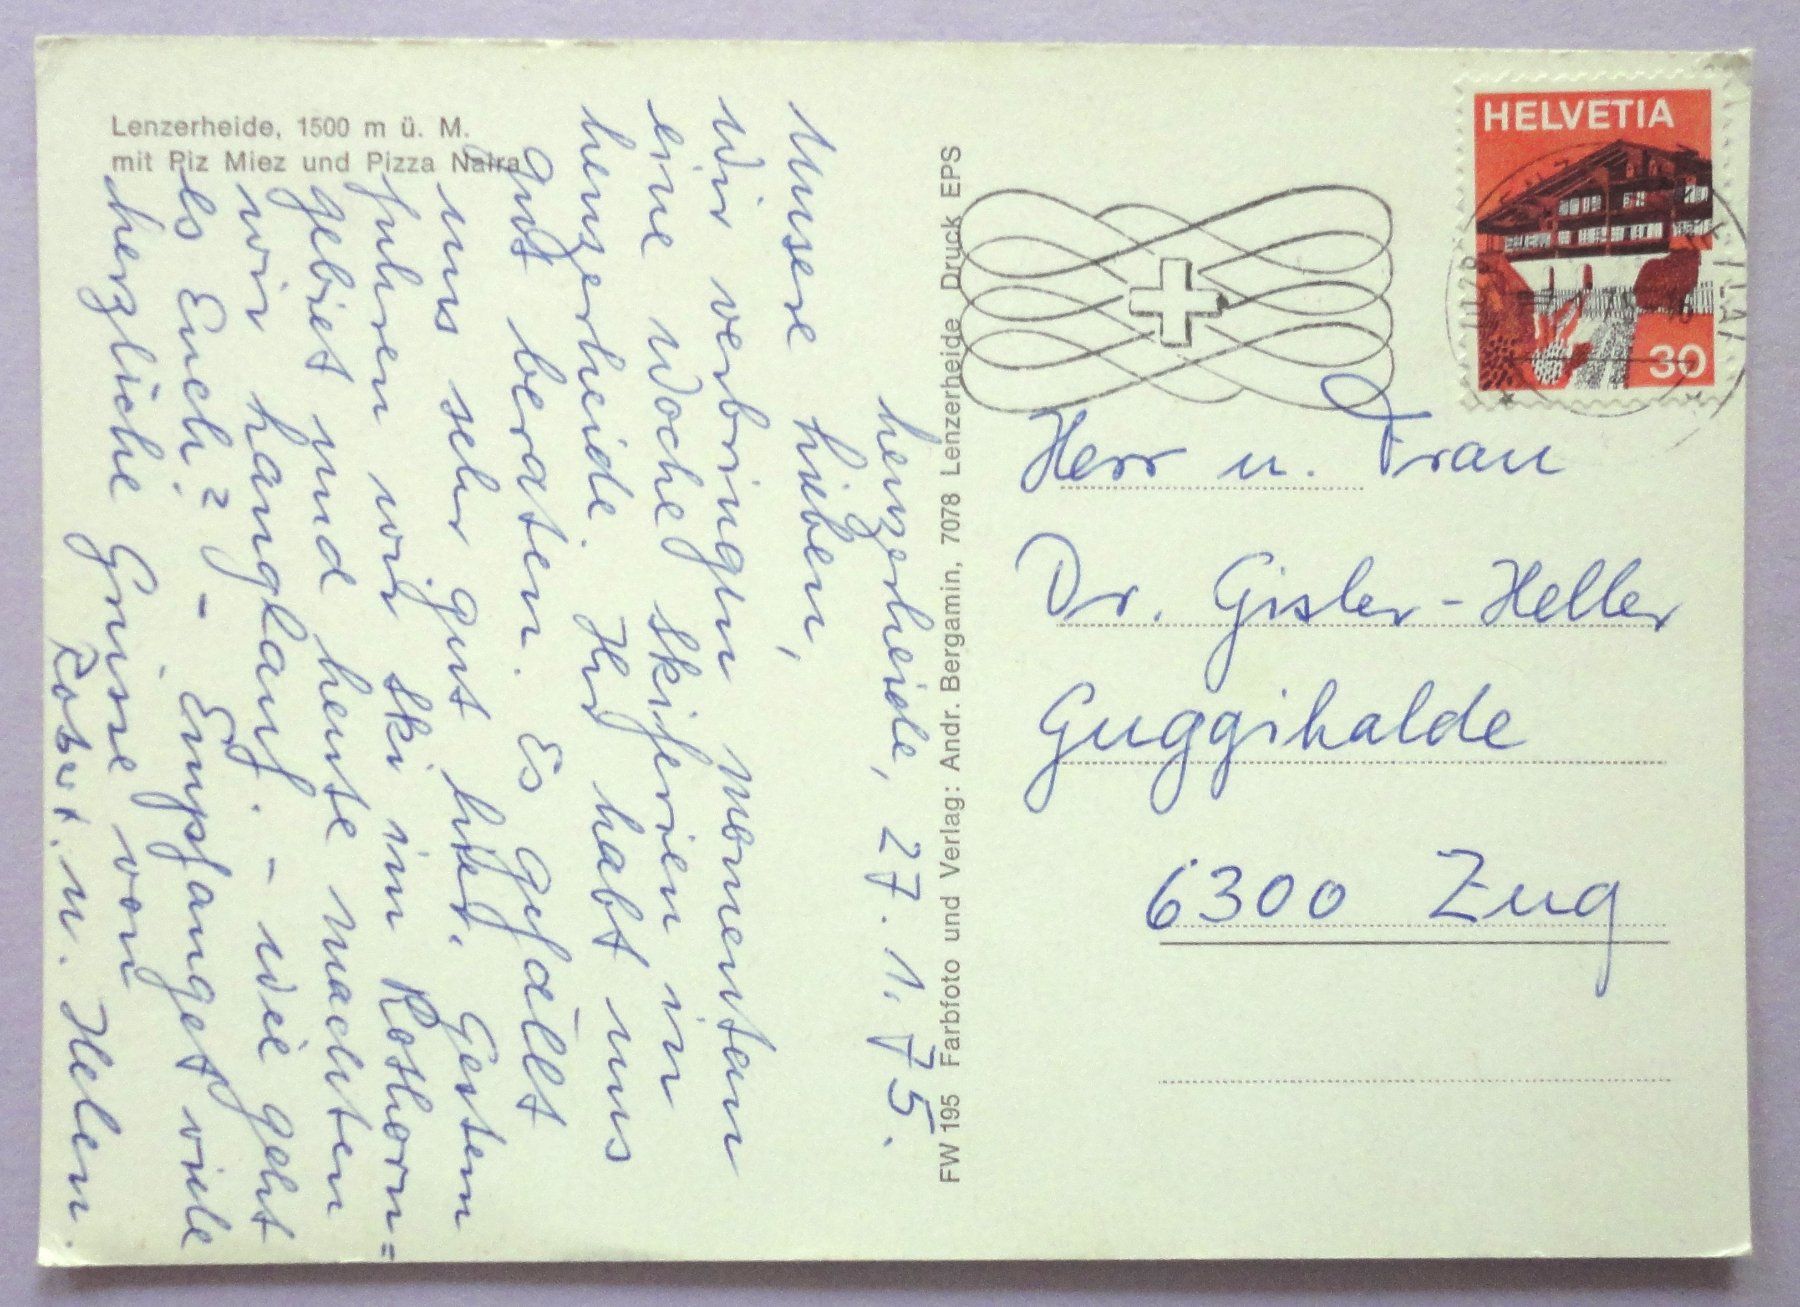 Lenzerheide, 1500 m ü. M.
mit Piz Miez und Pizza Naira
Lenzerheide, 27.1.75.
Unsere Lieben,
Wir verbringen momentan
eine Woche Skiferien in
Lenzerheide. Ihr habt uns
gut beraten. Es gefällt
uns sehr gut hier. Gestern
fuhren wir Ski im Rothorn=
gebiet und heute machten
wir Langlauf. – Wie geht
es Euch? – Empfanget viele
herzliche Grüsse von
Robert u. Helen.
FW 195 Farbfoto und Verlag: Andr. Bergamin, 7078 Lenzerheide Druck EPS
HELVETIA
30
Herr u. Frau
Dr. Gisler-Heller
Guggihalde
6300 Zug